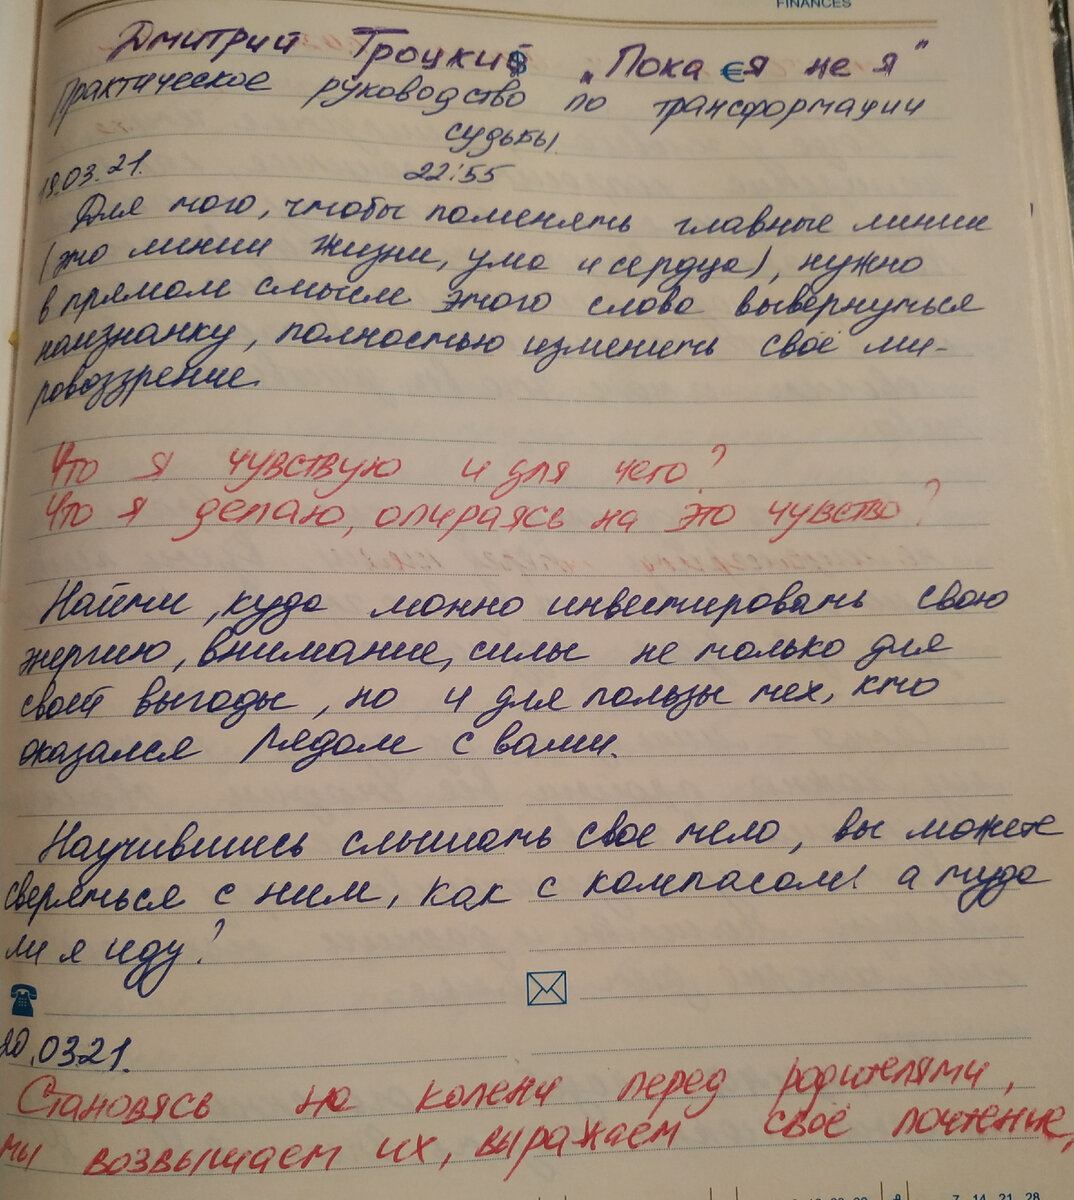 FINANCES
Дмитрий Троцкий „Пока я не я"
Практическое руководство по трансформации
судьбы.
19.03.21. 22:55
Для того, чтобы поменять главные линии
(это линии жизни, ума и сердца), нужно
в прямом смысле этого слова вывернуться
наизнанку, полностью изменить своё ми-
ровоззрение.
Что я чувствую и для чего?
Что я делаю, опираясь на это чувство?
Найти, куда можно инвестировать свою
энергию, внимание, силы не только для
своей выгоды, но и для пользы тех, кто
оказался рядом с вами.
Научившись слышать свое тело, вы можете
сверяться с ним, как с компасом: а туда
ли я иду?
20.03.21.
Становясь на колени перед родителями,
мы возвышаем их, выражаем своё почтение,
7 14 21 28